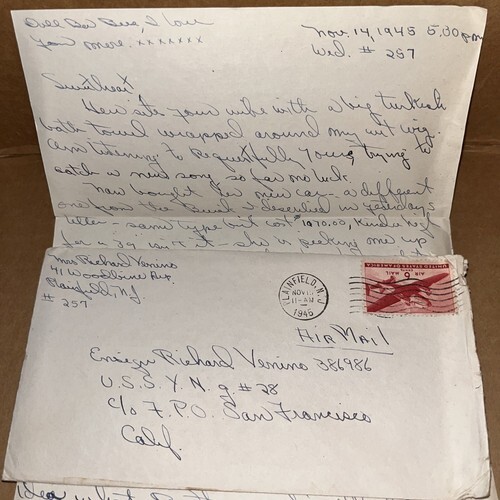 I love
you more. xxxxxxx
Nov. 14, 1945 5:00 pm
Wed. # 257
Sweetheart
Here sits your wife with a big turkish
bath towel wrapped around my wet wig.
Am listening to Requestfully Yours, trying to
catch a new song so far no luck.
bought her new car - a different
one from the I described in yesterday's
letter - same type but cost $1070.00, Kinda high
for a 39 isn't it - she is picking one up
Mrs Richard Venino
41 Woodbine Ave.
Plainfield, NJ
# 257
PLAINFIELD, N.J.
NOV 15
11-AM
1945
UNITED STATES OF AMERICA
AIR MAIL
6
CENTS
AIR MAIL
Ensign Richard Venino 386986
U.S.S. Y.N.g. #28
c/o F.P.O. San Francisco
Calif.
idea what